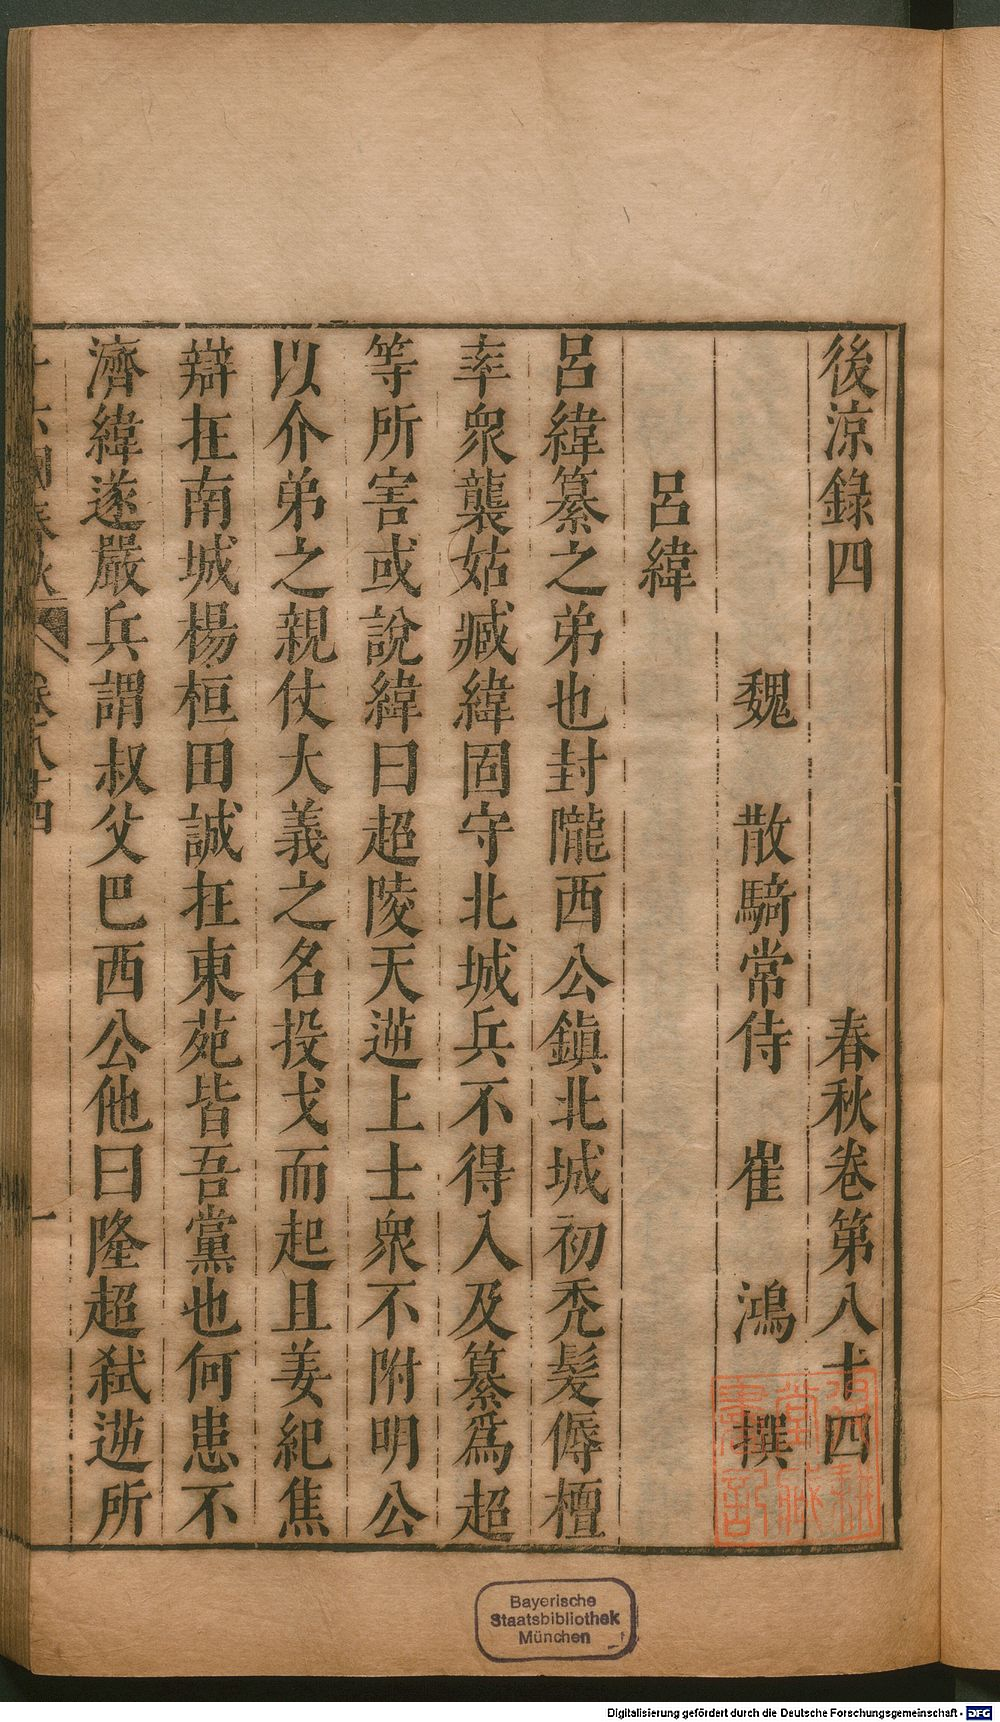 後涼錄四 春秋卷第八十四
魏 散騎常侍 崔 鴻 撰
呂緯
呂緯纂之弟也封隴西公鎮北城初禿髮傉檀
率衆襲姑臧緯固守北城兵不得入及纂爲超
等所害或說緯曰超陵天逆上士衆不附明公
以介弟之親仗大義之名投戈而起且姜紀焦
辯在南城楊桓田誠在東苑皆吾黨也何患不
濟緯遂嚴兵謂叔父巴西公他曰隆超弑逆所
十六國春秋 卷八十四 一
Bayerische
Staatsbibliothek
München
Digitalisierung gefördert durch die Deutsche Forschungsgemeinschaft - DFG